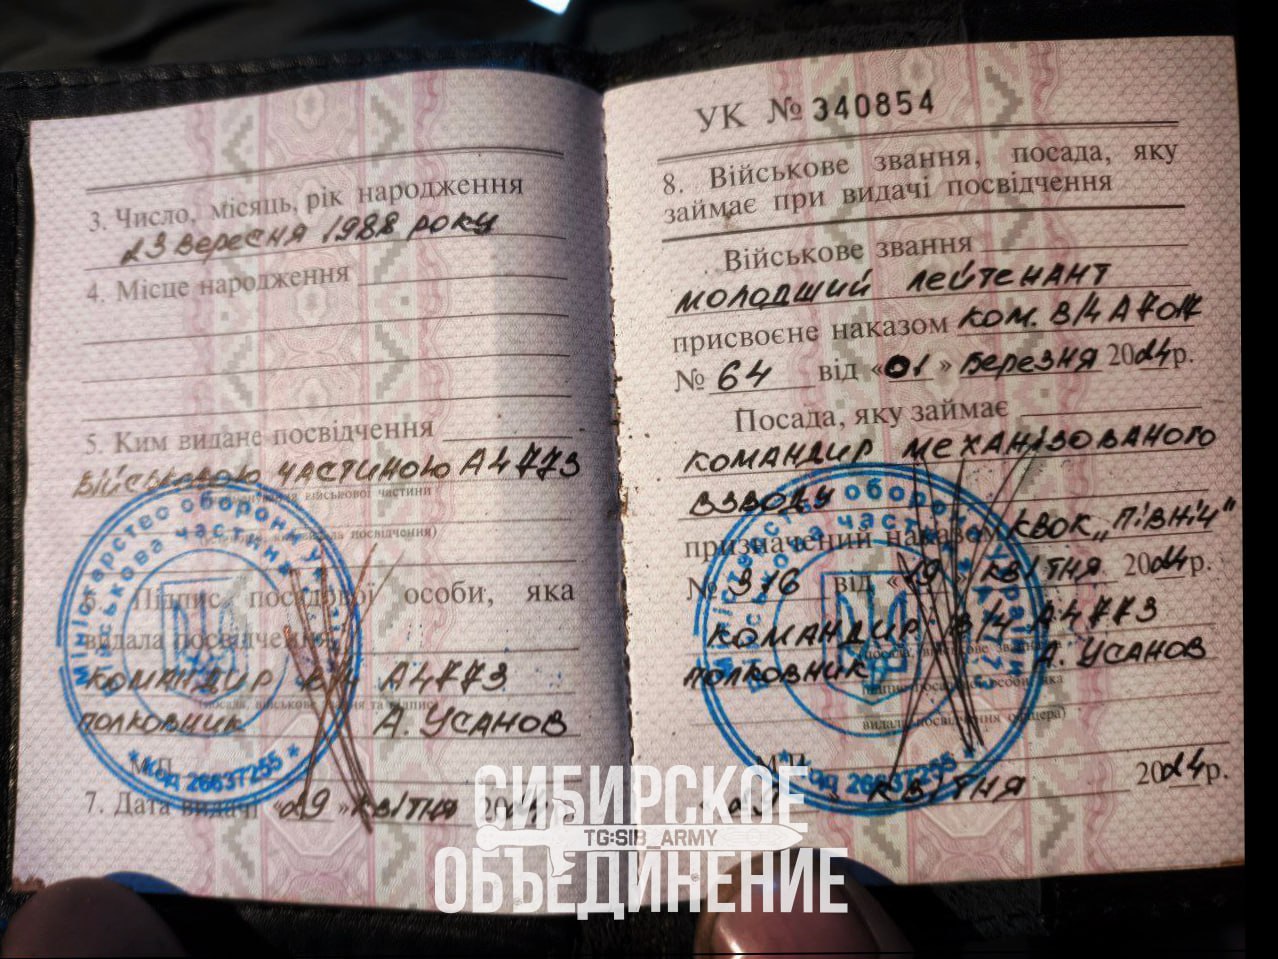 3. Число, місяць, рік народження
23 вересня 1988 року
4. Місце народження
5. Ким видане посвідчення
військовою частиною А4773
6. Підпис посадової особи, яка
видала посвідчення
командир в/ч А4773
полковник А. Усанов
М.П.
7. Дата видачі «29» квітня 2024 р.
Міністерство оборони України
Військова частина
* Код 26637255 *
УК № 340854
8. Військове звання, посада, яку
займає при видачі посвідчення
Військове звання
молодший лейтенант
присвоєне наказом ком. в/ч А7017
№ 64 від «01» березня 2024р.
Посада, яку займає
командир механізованого
взводу
призначений наказом КВОК „Північ"
№ 316 від «19» квітня 2024р.
командир в/ч А4773
полковник А. Усанов
видала посвідчення офіцера)
М.П.
«29» квітня 2024р.
Міністерство оборони України
Військова частина А4773
* Код 26637255 *
СИБИРСКОЕ
TG:SIB_ARMY
ОБЪЕДИНЕНИЕ